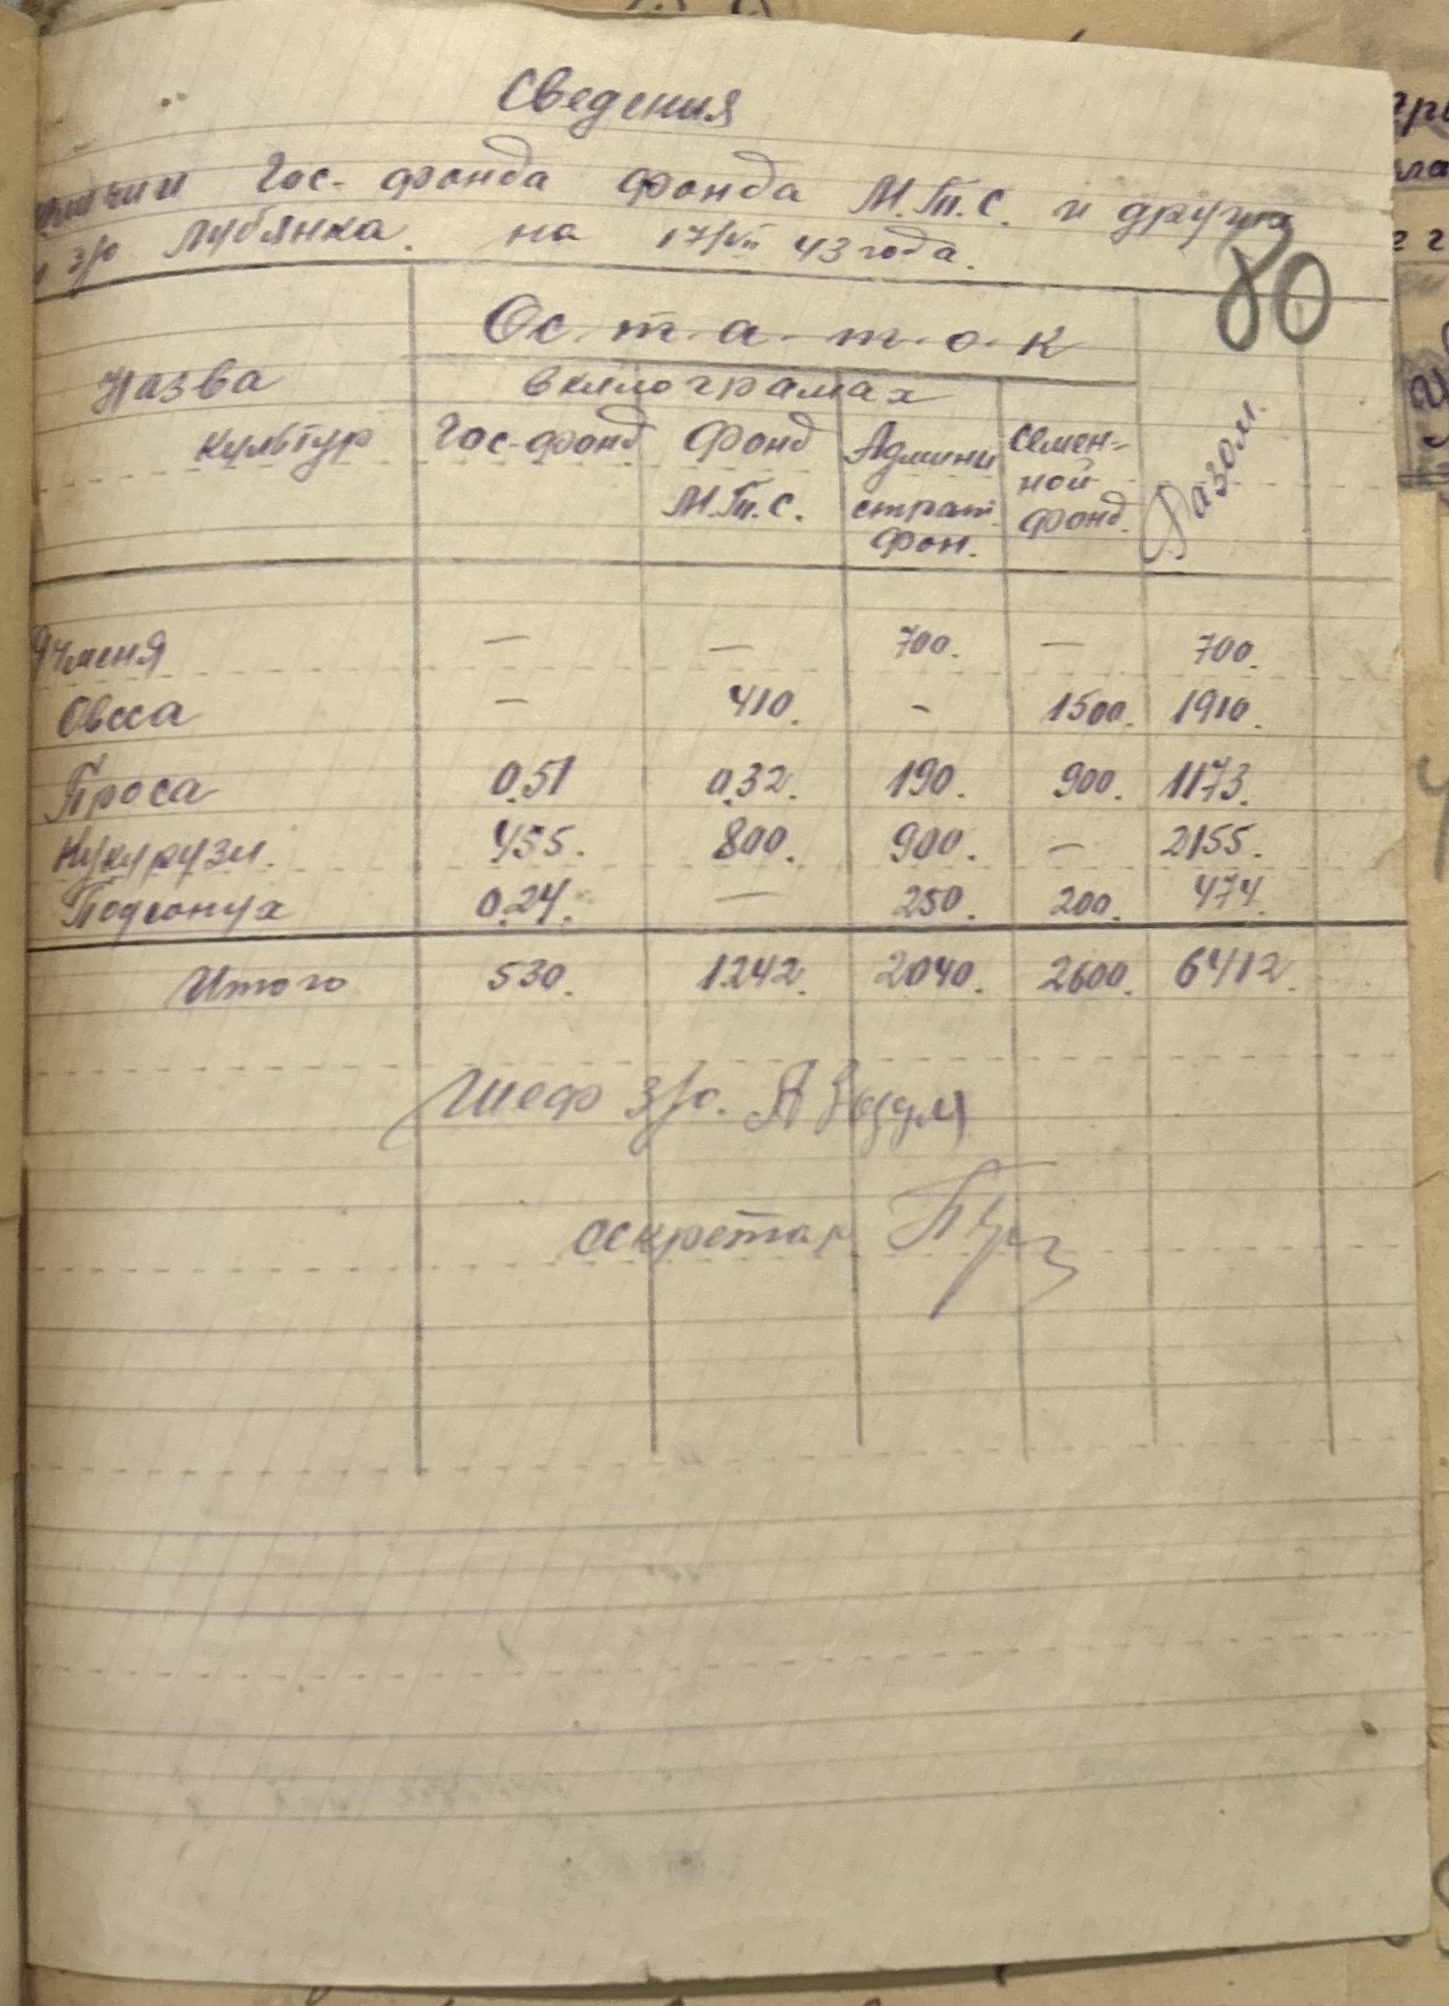 Сведения
Гос-фонда фонда М.Т.С. и других
з/о Лубянка. на 17/VII 43 года.
80
Ос.т.а.т.о.к
Назва культур
в килограмах
Гос-фонд
Фонд М.Т.С.
Админи страт. фон.
Семен-ной фонд.
Разом.
Ячменя — — 700. — 700.
Овсса — 410. - 1500. 1910.
Проса 0.51 0.32. 190. 900. 1173.
Кукурузи. 455. 800. 900. — 2155.
Подсонух 0.24. — 250. 200. 474.
Итого 530. 1242. 2040. 2600. 6412.
Шеф з/о.
секретар